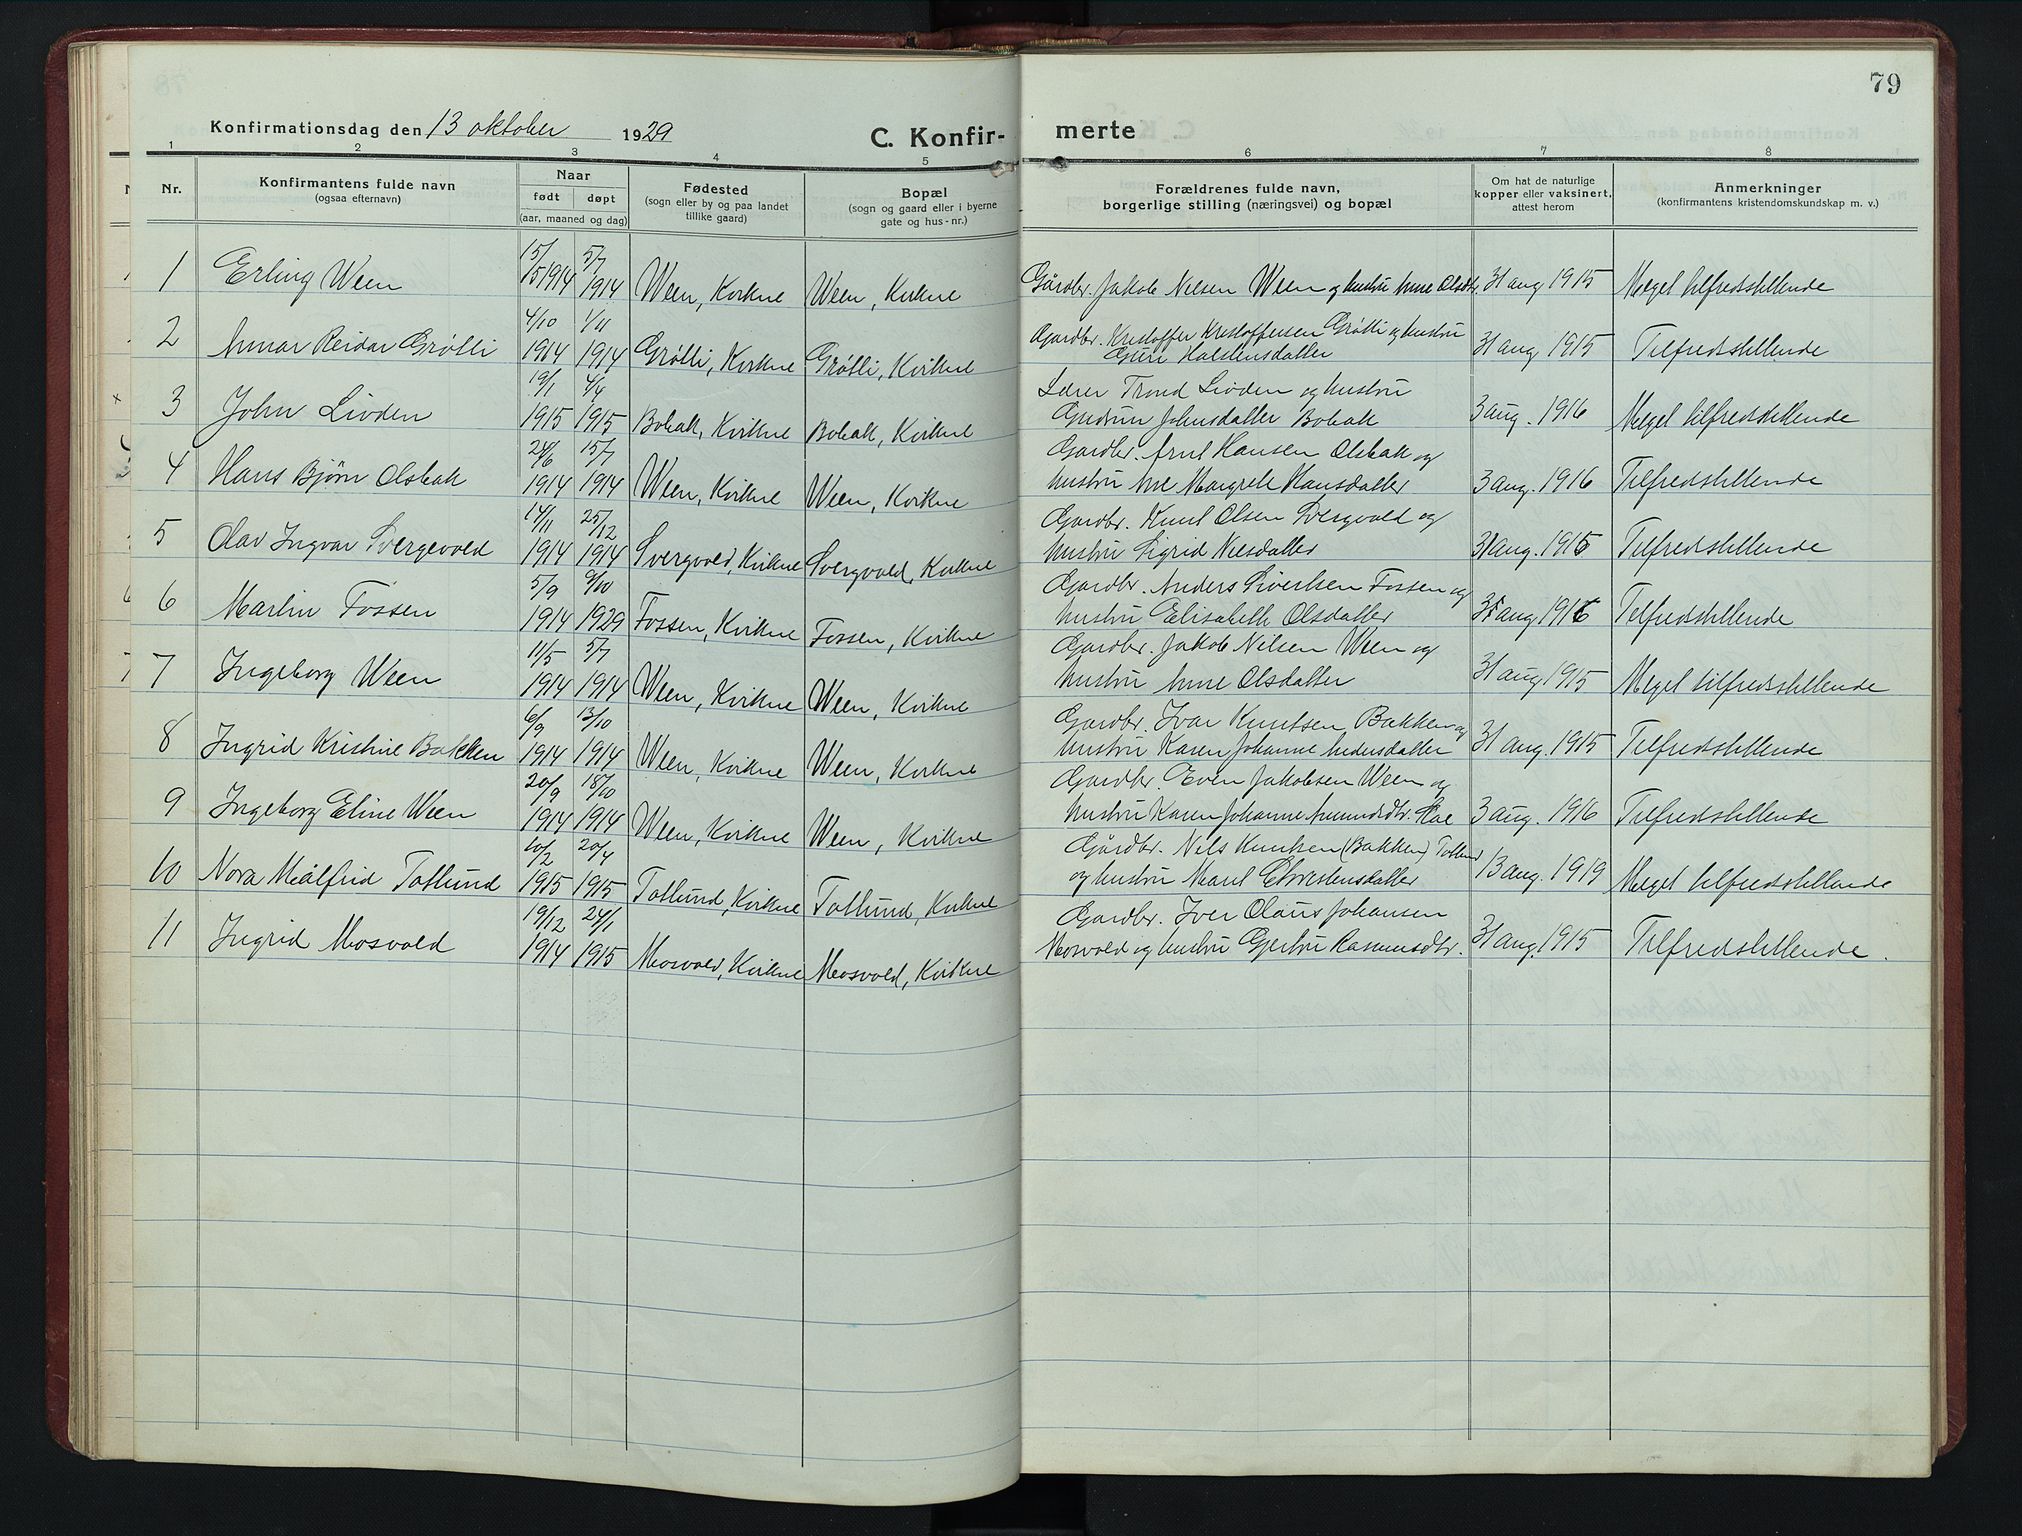 79
Konfirmationsdag den 13 oktober 1929
C. Konfirmerte
1 2 3 4 5 6 7 8
Nr.
Konfirmantens fulde navn
(ogsaa efternavn)
Naar
født døpt
(aar, maaned og dag)
Fødested
(sogn eller by og paa landet
tillike gaard)
Bopæl
(sogn og gaard eller i byerne
gate og hus-nr.)
Forældrenes fulde navn,
borgerlige stilling (næringsvei) og bopæl
Om hat de naturlige
kopper eller vaksinert,
attest herom
Anmerkninger
(konfirmantens kristendomskundskap m. v.)
1 Erling Ween 15/5 1914 5/7 1914 Ween, Kvikne Ween, Kvikne Gårdbr. Jakob Nilsen Ween og hustru Anne Olsdtr. 31 aug 1915 Meget tilfredsstillende
2 Annar Reidar Grøtli 4/10 1914 1/11 1914 Grøtli, Kvikne Grøtli, Kvikne Gardbr. Kristoffer Kristoffersen Grøtli og hustru
Guri Halstensdatter 31 aug 1915 Tilfredsstillende
3 John Livden 19/1 1915 4/4 1915 Bobak, Kvikne Bobak, Kvikne Lærer Trond Livden og hustru
Gudrun Johnsdatter Bobak 3 aug. 1916 Meget tilfredsstillende
4 Hans Bjørn Olsbak 24/6 1914 15/7 1914 Ween, Kvikne Ween, Kvikne Gardbr. Arnt Hansen Olsbak og
hustru Ane Margrete Hansdatter 3 aug. 1916 Tilfredsstillende
5 Olav Ingvar Svergvold 14/11 1914 25/12 1914 Svergvold, Kvikne Svergvold, Kvikne Gardbr. Knut Olsen Svergvold og
hustru Sigrid Nilsdatter 31 aug. 1915 Tilfredsstillende
6 Martin Fossen 5/9 1914 9/10 1929 Fossen, Kvikne Fossen, Kvikne Gardbr. Anders Sivertsen Fossen og
hustru Elisabeth Olsdatter aug 1916 Tilfredsstillende
7 Ingeborg Ween 11/5 1914 5/7 1914 Ween, Kvikne Ween, Kvikne Gardbr. Jakob Nilsen Ween og
hustru Anne Olsdatter 31 aug 1915 Meget tilfredsstillende
8 Ingrid Kristine Bakken 6/9 1914 13/10 1914 Ween, Kvikne Ween, Kvikne Gardbr. Ivar Knutsen Bakken og
hustru Karen Johanne Andersdatter 31 aug. 1915 Tilfredsstillende
9 Ingeborg Eline Ween 20/9 1914 18/10 1914 Ween, Kvikne Ween, Kvikne Gardbr. Even Jakobsen Ween og
hustru Karen Johanne Amundsdtr. Hoe 3 aug. 1916 Tilfredsstillende
10 Nora Målfrid Totlund 10/2 1915 20/4 1915 Totlund, Kvikne Totlund, Kvikne Gårdbr. Nils Knutsen (Bakken) Totlund
og hustru Marit Christensdatter 13 aug. 1919 Meget tilfredsstillende
11 Ingrid Mosvold 19/12 1914 24/1 1915 Mosvold, Kvikne Mosvold, Kvikne Gardbr. Iver Claus Johansen
Mosvold og hustru Gjertru Rasmusdtr. 31 aug. 1915 Tilfredsstillende.